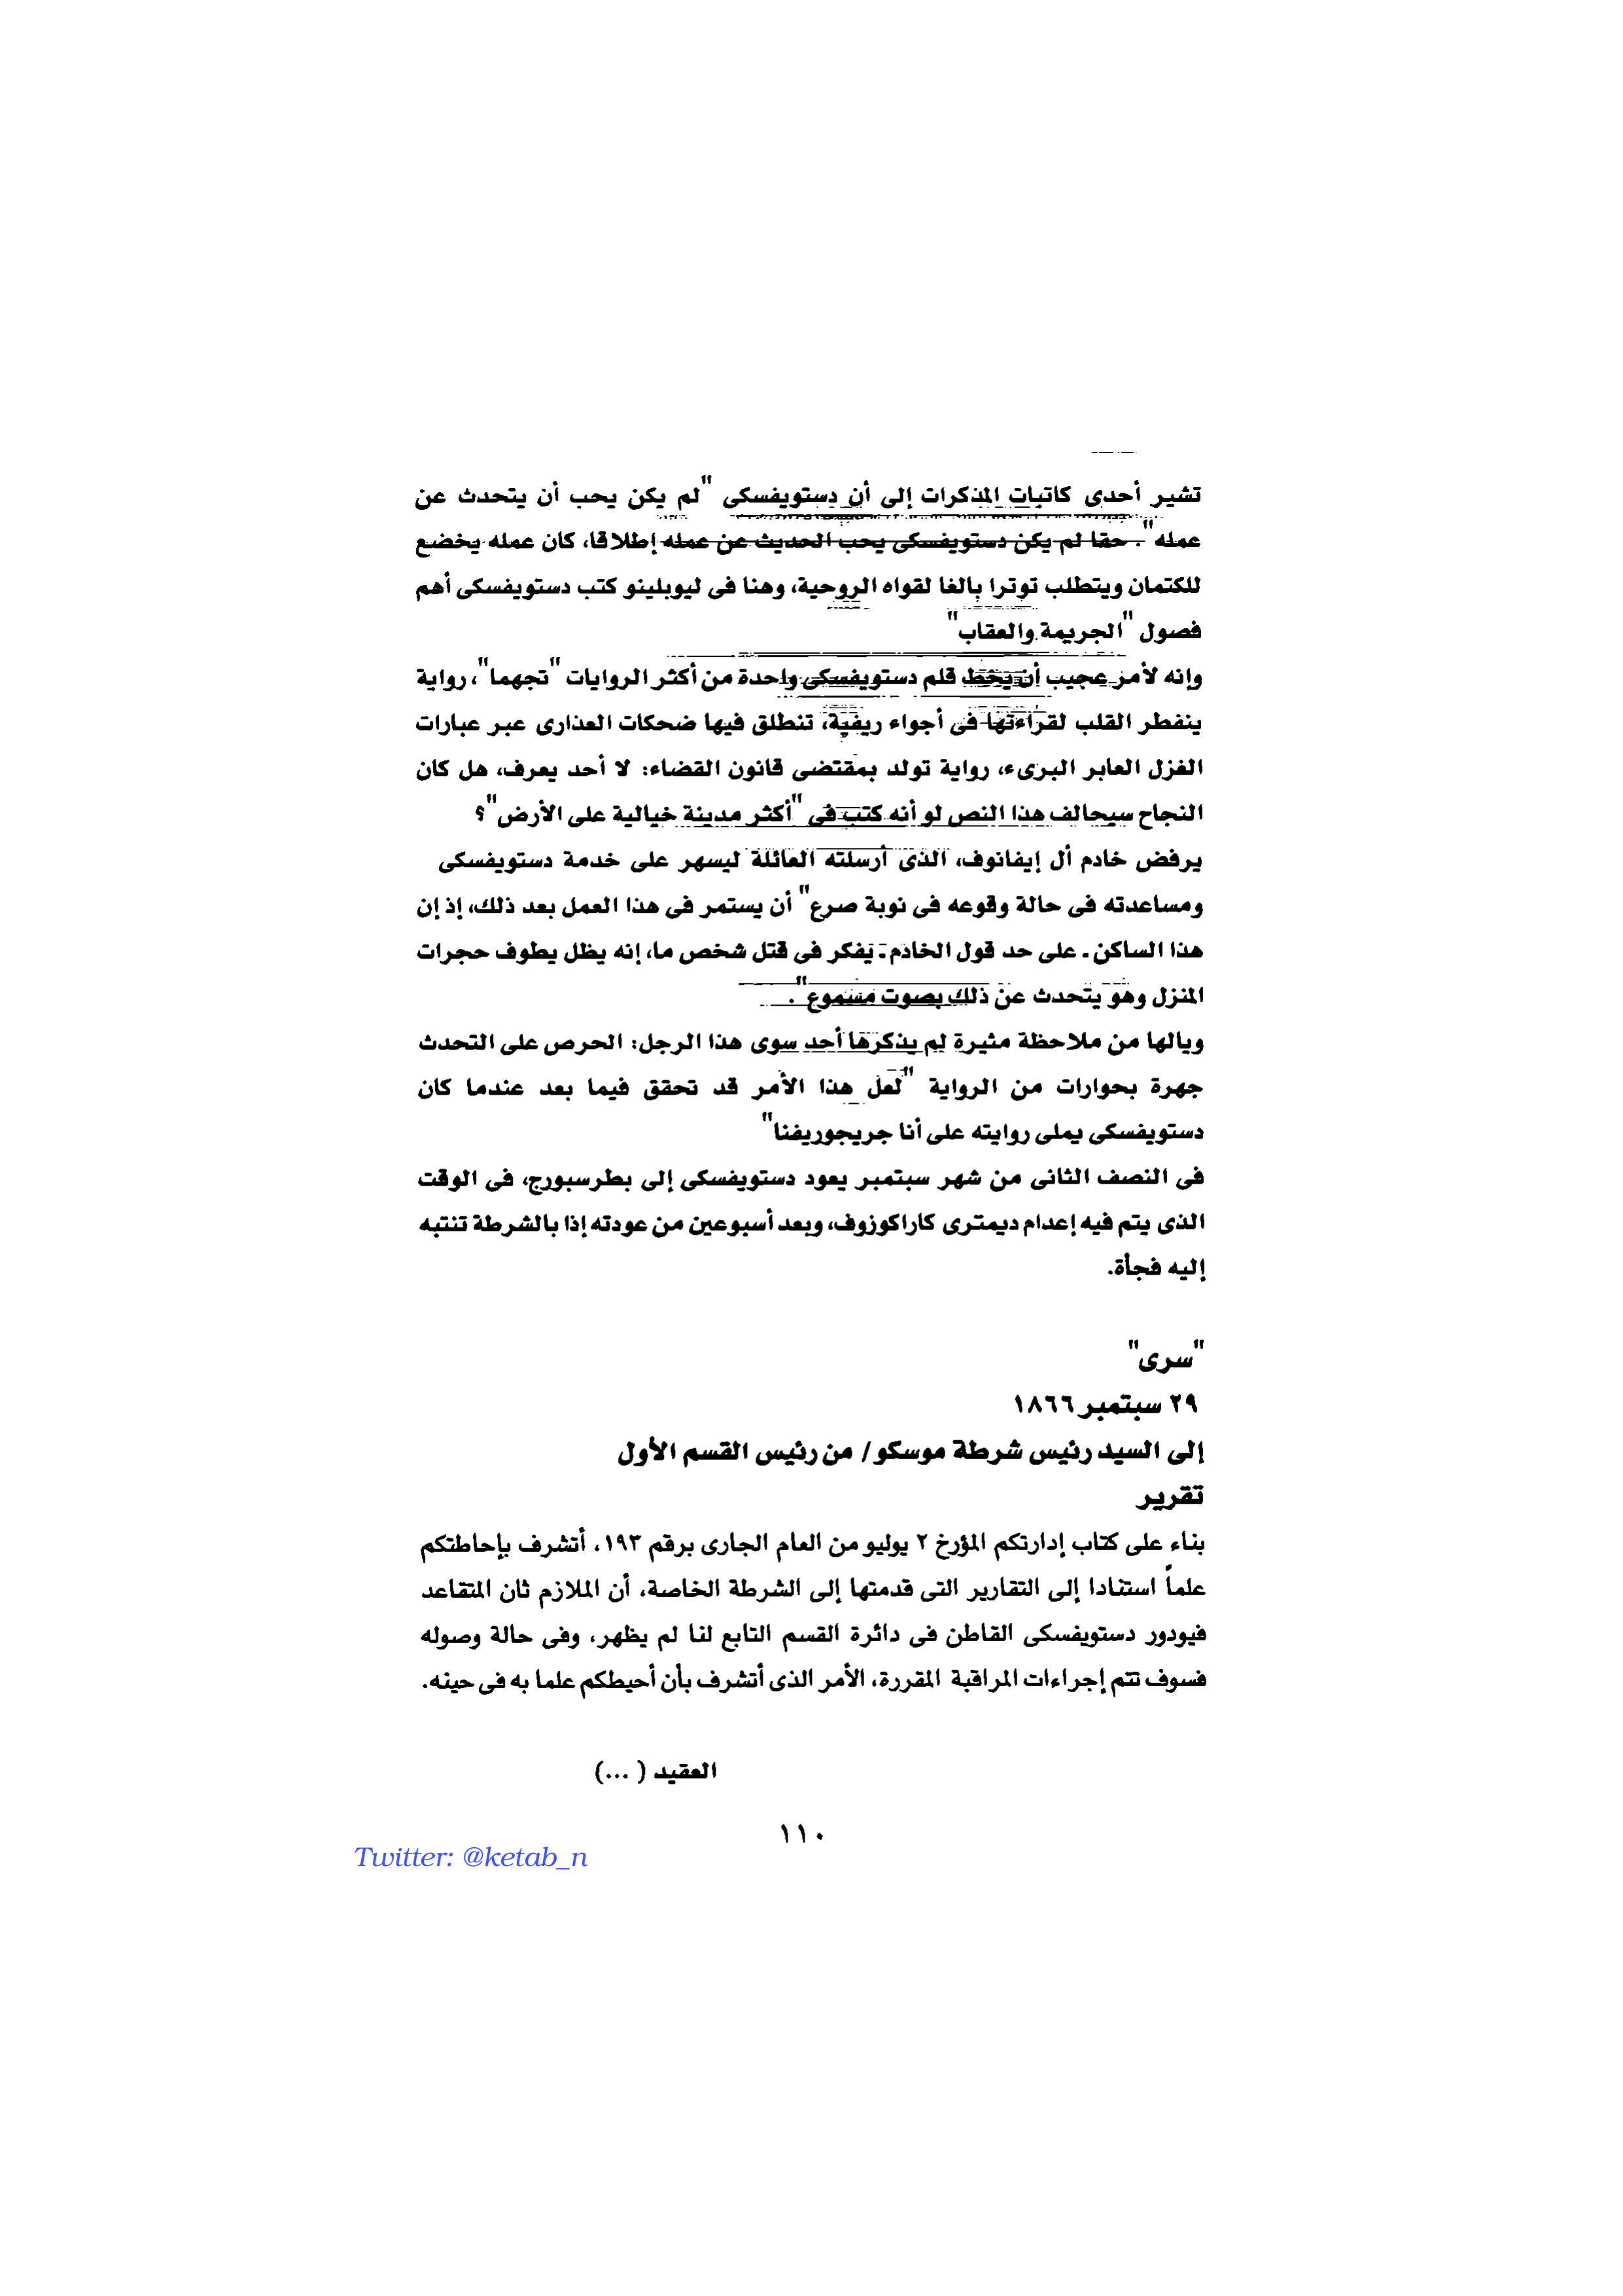 تشير أحدى كاتبات المذكرات إلى أن دستويفسكى "لم يكن يحب أن يتحدث عن
عمله". حقا لم يكن دستويفسكى يحب الحديث عن عمله إطلاقا، كان عمله يخضع
للكتمان ويتطلب توترا بالغا لقواه الروحية، وهنا فى ليوبلينو كتب دستويفسكى أهم
فصول "الجريمة والعقاب"
وإنه لأمر عجيب أن يخط قلم دستويفسكى واحدة من أكثر الروايات "تجهما"، رواية
ينفطر القلب لقراءتها فى أجواء ريفية، تنطلق فيها ضحكات العذارى عبر عبارات
الغزل العابر البرىء، رواية تولد بمقتضى قانون القضاء: لا أحد يعرف، هل كان
النجاح سيحالف هذا النص لو أنه كتب فى "أكثر مدينة خيالية على الأرض"؟
يرفض خادم أل إيفانوف، الذى أرسلته العائلة ليسهر على خدمة دستويفسكى
ومساعدته فى حالة وقوعه فى نوبة صرع" أن يستمر فى هذا العمل بعد ذلك، إذ إن
هذا الساكن ـ على حد قول الخادم ـ يفكر فى قتل شخص ما، إنه يظل يطوف حجرات
المنزل وهو يتحدث عن ذلك بصوت مسموع".
ويالها من ملاحظة مثيرة لم يذكرها أحد سوى هذا الرجل: الحرص على التحدث
جهرة بحوارات من الرواية "لعل هذا الأمر قد تحقق فيما بعد عندما كان
دستويفسكى يملى روايته على أنا جريجوريفنا"
فى النصف الثانى من شهر سبتمبر يعود دستويفسكى إلى بطرسبورج، فى الوقت
الذى يتم فيه إعدام ديمترى كاراكوزوف، وبعد أسبوعين من عودته إذا بالشرطة تنتبه
إليه فجأة.
"سرى"
٢٩ سبتمبر ١٨٦٦
إلى السيد رئيس شرطة موسكو/ من رئيس القسم الأول
تقرير
بناء على كتاب إدارتكم المؤرخ ٢ يوليو من العام الجارى برقم ١٩٣، أتشرف بإحاطتكم
علماً استنادا إلى التقارير التى قدمتها إلى الشرطة الخاصة، أن الملازم ثان المتقاعد
فيودور دستويفسكى القاطن فى دائرة القسم التابع لنا لم يظهر، وفى حالة وصوله
فسوف تتم إجراءات المراقبة المقررة، الأمر الذى أتشرف بأن أحيطكم علما به فى حينه.
العقيد ( ...)
١١٠
Twitter: @ketab_n